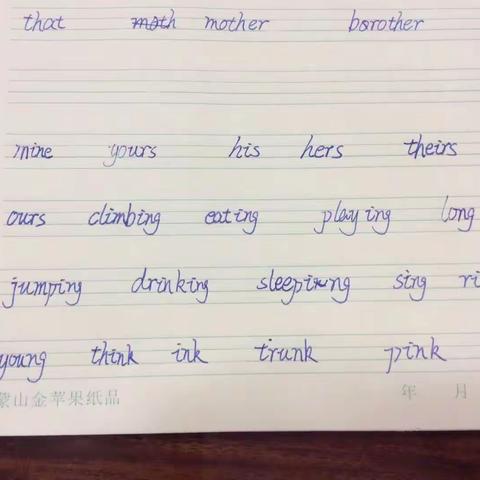 that moth mother borother
mine yours his hers theirs
ours climbing eating playing long
jumping drinking sleeping sing ri
young think ink trunk pink
蒙山金苹果纸品 年 月